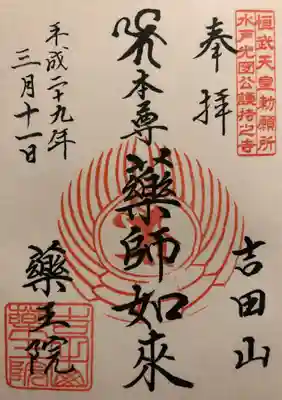 桓武天皇勅願所
水戸光圀公護持之寺
奉拝
吉田山
本尊藥師如來
平成二十九年
三月十一日
藥王院